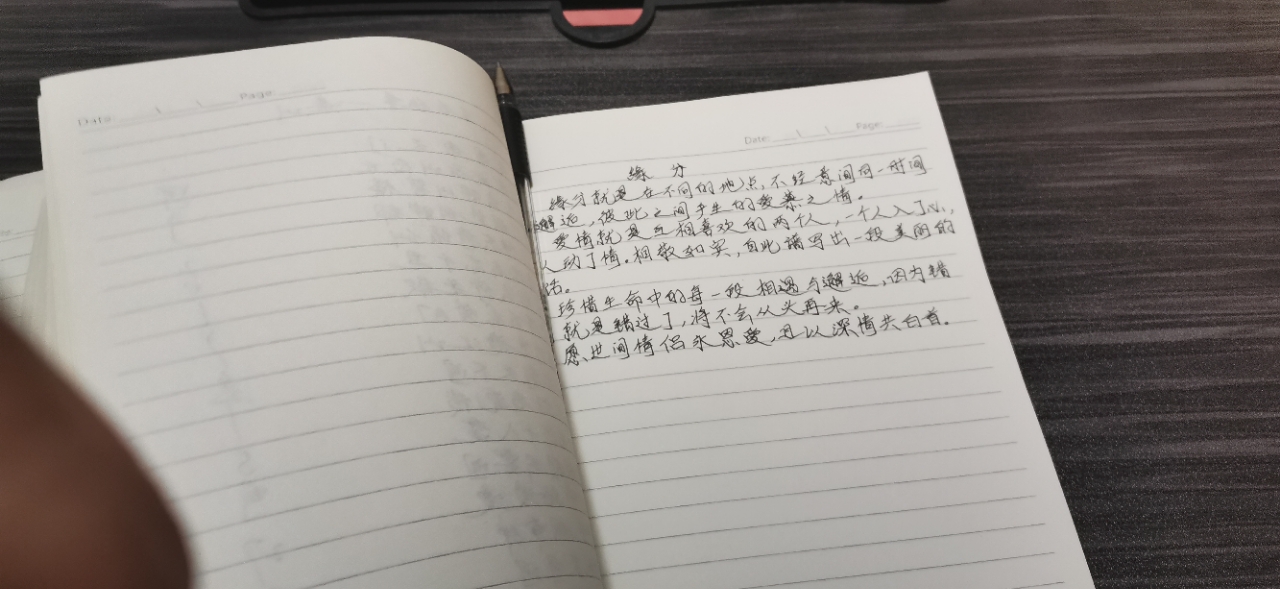 Date: Page:
Date: Page:
缘分
缘分就是在不同的地点,不经意间同一时间
邂逅,彼此之间产生的爱慕之情。
爱情就是互相喜欢的两个人,一个人入了心,
人动了情。相敬如宾,自此谱写出一段美丽的
话。
珍惜生命中的每一段相遇与邂逅,因为错
就是错过了,将不会从头再来。
愿世间情侣永恩爱,且以深情共白首.